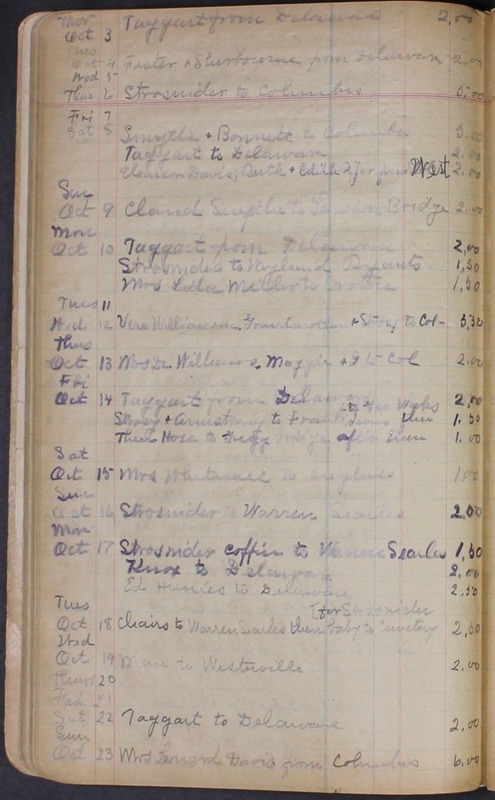 Thur
Oct 3 Taggart from Delaware 2,00
Tues
Oct 4 Foster + Sherbourne from Delaware 2,00
Wed 5
Thur 6 Strosnider to Columbus 5,00
Fri 7
Sat 8 Smythe + Bonnett to Columbus 5.00
Taggart to Delaware 2.00
Davis, Ruth + Edith from West 2,00
Sun
Oct 9 Claud Smythe to Bridge 2.00
Mon
Oct 10 Taggart from Delaware 2,00
Strosnider to Bryants 1,50
Mrs Lida Miller to 1,50
Tues 11
Wed 12 Vera Williamson, Grandmother + Strosy to Col- 5,50
Thurs
Oct 13 Mrs Dr Williams, Maggie + Col 2.00
Fri
Oct 14 Taggart from Delaware 2,00
to Gas Works
Strosy + Armstrong to Frank then 1.50
Then Hose to bridge after them 1.00
Sat
Oct 15 Mrs Whitmore to 1 00
Sun
Oct 16 Strosnider to Warren Searles 2,00
Mon
Oct 17 Strosnider coffin to Warren Searles 1,50
Knox to Delaware 2.00
Ed to Delaware 2.50
Tues for Strosnider
Oct 18 Chairs to Warren Searles then baby to Cemetery 2,50
Wed
Oct 19 Man to Westerville 2,00
Thurs 20
Fri 21
Sat 22 Taggart to Delaware 2,00
Sun
Oct 23 Mrs Leonard Davis from Columbus 6.00